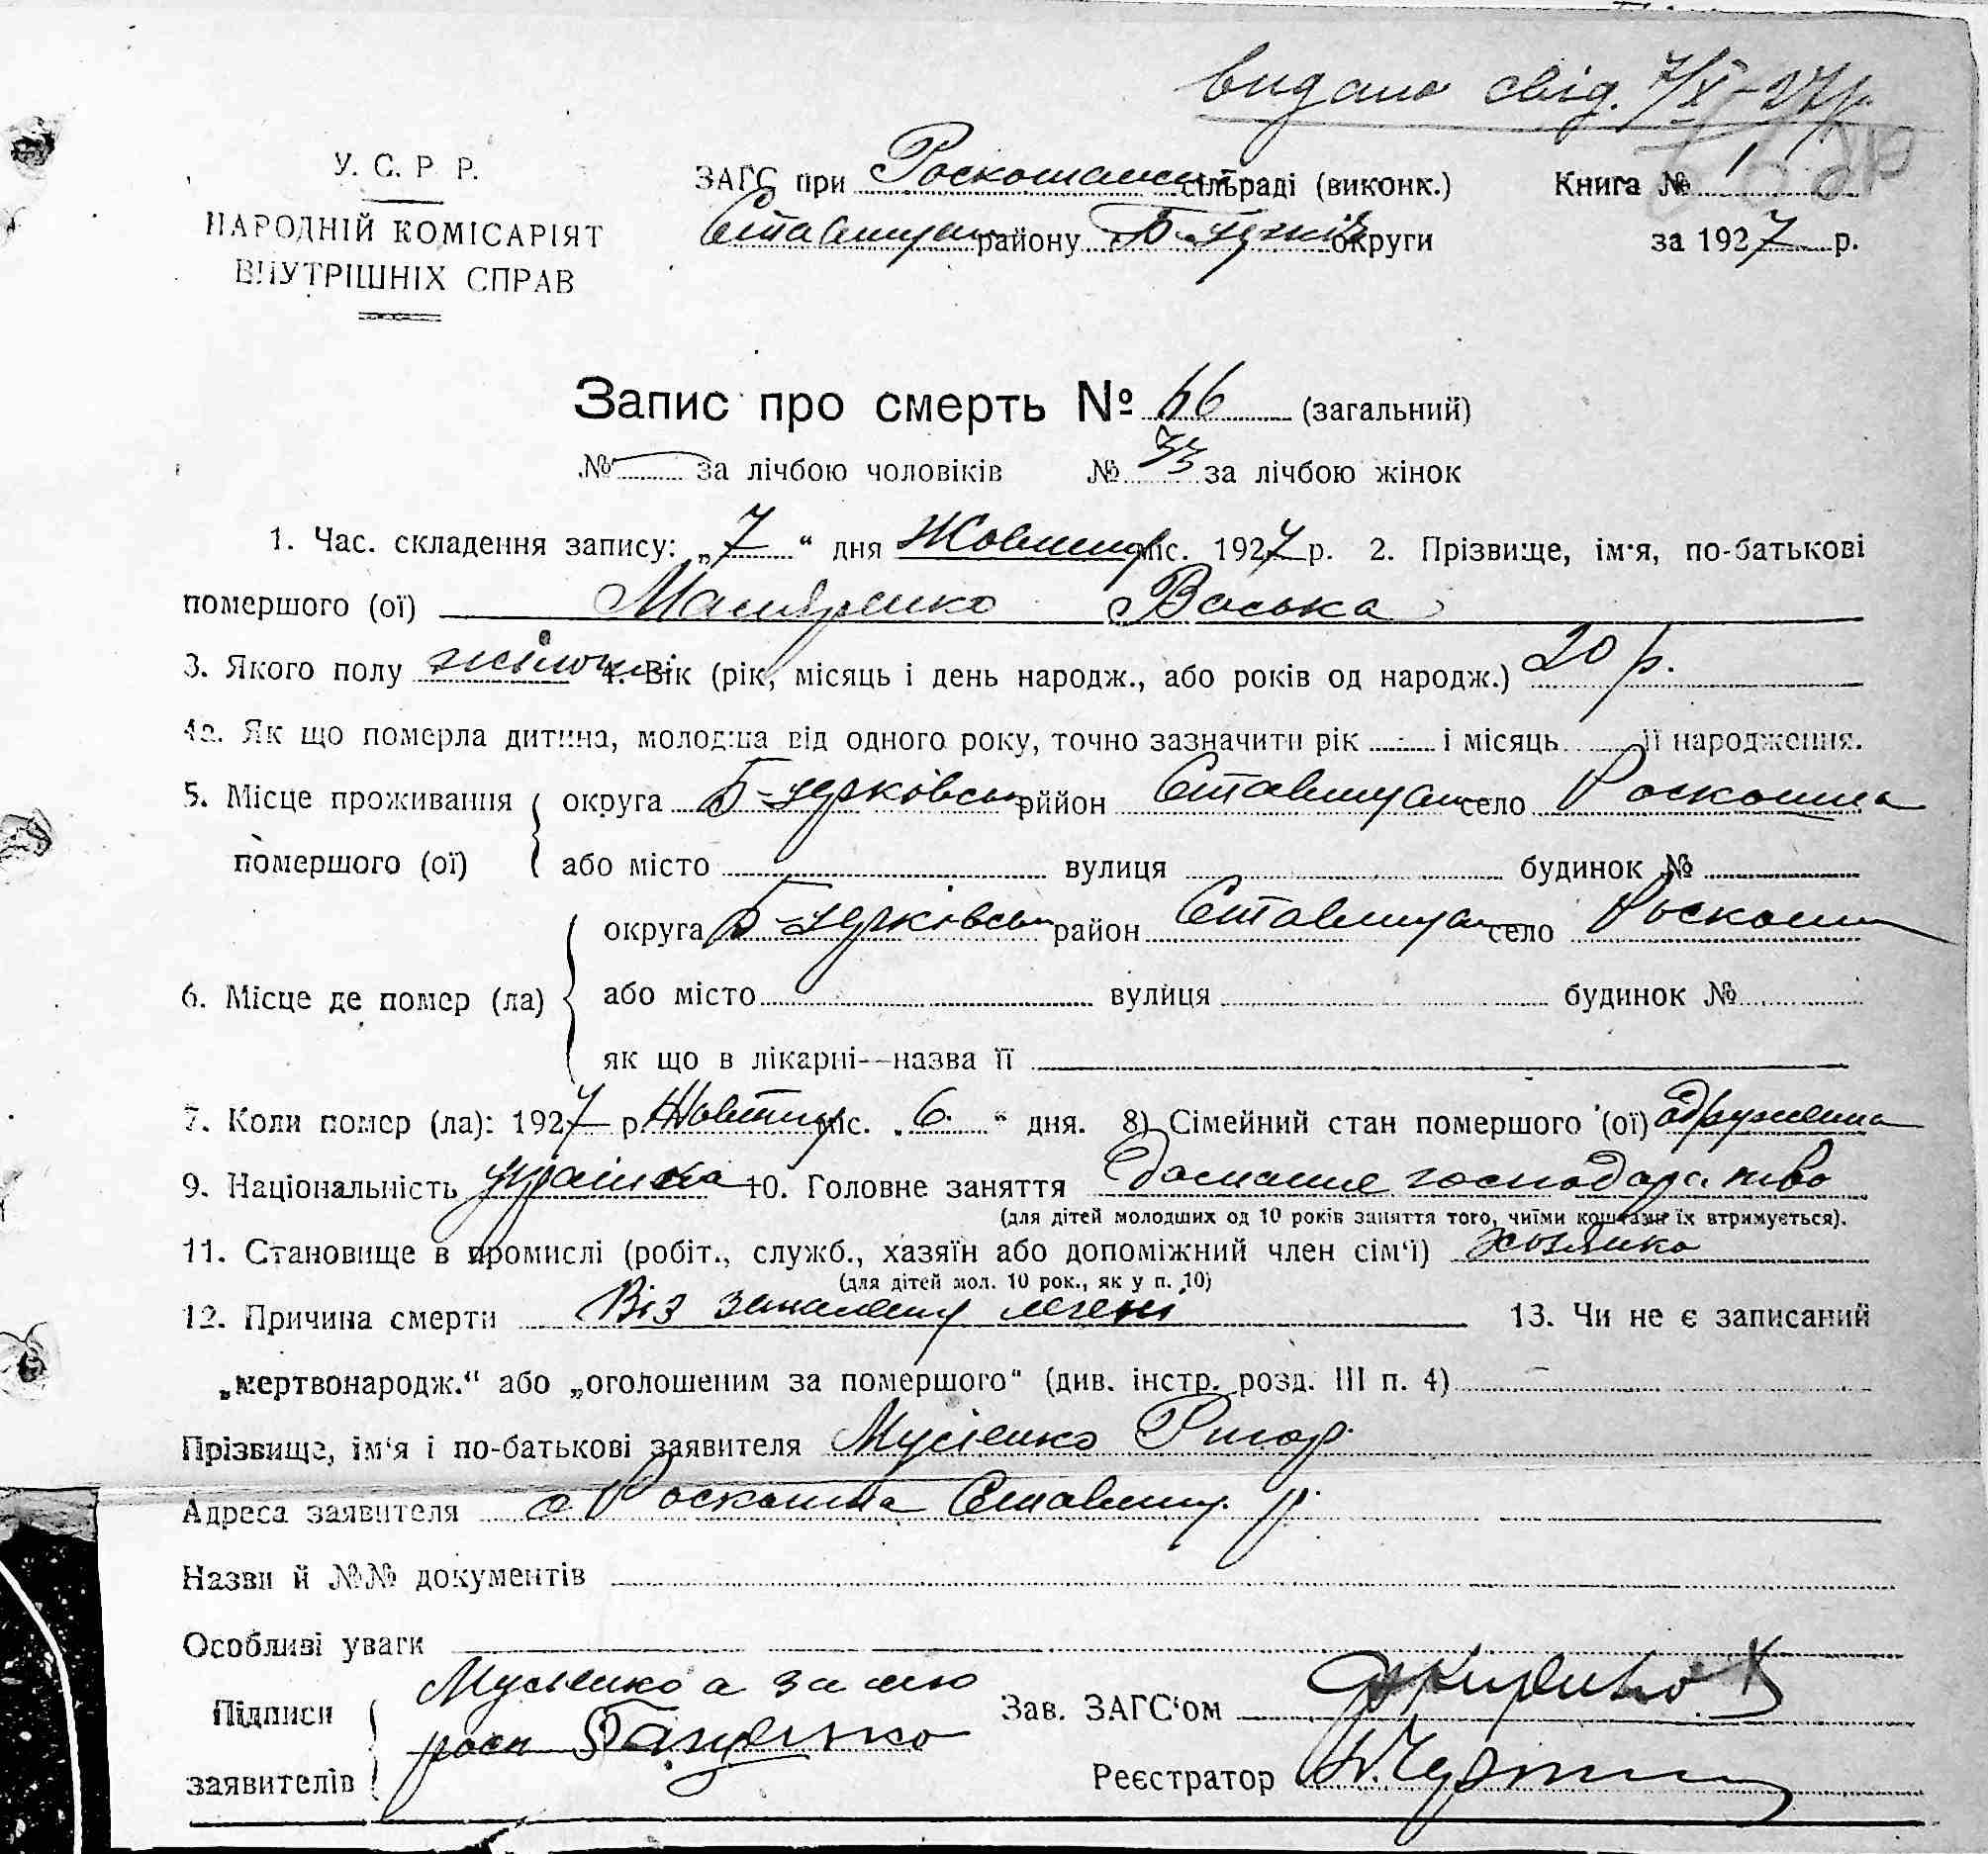 видано свід. 7/X-27р.
У. С. Р. Р.
НАРОДНІЙ КОМІСАРІЯТ
ВНУТРІШНІХ СПРАВ
ЗАГС при Роскошанс сільраді (виконк.) Книга №
Ставищан району Б-церків округи за 1927 р.
Запис про смерть № 66 (загальний)
№ — за лічбою чоловіків № 33 за лічбою жінок
1. Час. складення запису: „7“ дня Жовтня міс. 1927 р. 2. Прізвище, ім'я, по-батькові
помершого (ої) Васька
3. Якого полу жіноч 4. Вік (рік, місяць і день народж., або років од народж.) 20 р.
4а. Як що померла дитина, молодша від одного року, точно зазначити рік і місяць її народження.
5. Місце проживання округа Б-церківськ рйіон Ставищан село Роскошна
помершого (ої) або місто вулиця будинок №
округа Б-церківськ район Ставищан село Роскошн
6. Місце де помер (ла) або місто вулиця будинок №
як що в лікарні--назва її
7. Коли помер (ла): 1927 р. Жовтня міс. „6“ дня. 8) Сімейний стан помершого (ої) дружина
9. Національність українка 10. Головне заняття домашне господарство
(для дітей молодших од 10 років заняття того, чиїми коштами їх втримується).
11. Становище в промислі (робіт., служб., хазяїн або допоміжний член сім'ї) хозяйка
(для дітей мол. 10 рок., як у п. 10)
12. Причина смерти Віз запалену легені 13. Чи не є записаний
„мертвонародж.“ або „оголошеним за помершого“ (див. інстр. розд. III п. 4) —
Прізвище, ім'я і по-батькові заявителя Мусієнко Григор.
Адреса заявителя с Роскошна Ставищ. р.
Назви й №№ документів
Особливі уваги
Мусіенко а за его
Підписи роси
заявителів
Зав. ЗАГС'ом
Реєстратор